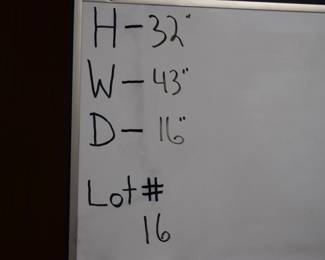 H-32"
W-43"
D-16"
Lot #
16